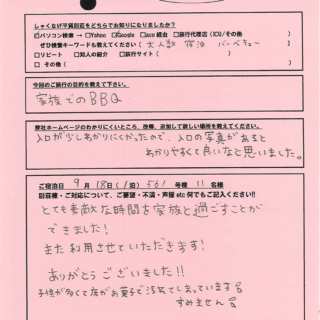 しゃくなげ平貸別荘をどちらでお知りになりましたか?
☑パソコン検索 → □Yahoo ☑Google □aco 経由 □旅行代理店 (ICU/その他 )
ぜひ検索キーワードも教えてください( 大人数 宿泊 バーベキュー )
□リピート □知人の紹介 □旅行サイト( )
□ その他( )
今回のご旅行の目的を教えて下さい。
家族でのBBQ
弊社ホームページのわかりにくいところ、改善、追加して欲しい場所を教えてください。
入口が少しわかりにくかったので、入口の写真があると
わかりやすくて良いなと思いました。
ご宿泊日 9月 18日( 1泊) 561 号棟 11 名様
別荘様・ご対応について、ご要望・不満・声援 etc 何でもご記入ください!!
とても素敵な時間を家族と過ごすことが
できました!
また利用させていただきます!
ありがとうございました!!
子供が多くて床がお菓子で汚れてしまっています
すみません